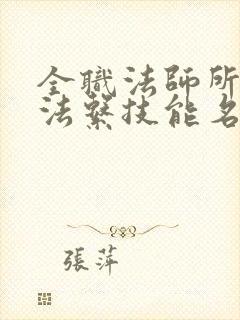 全職法師所
法繫技能名
張萍